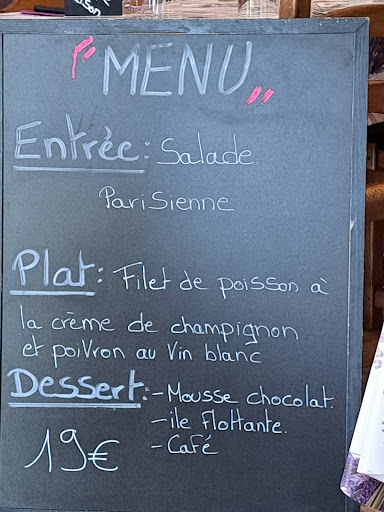 son
"MENU"
Entrée: Salade.
Parisienne
Plat: Filet de poisson à
la crème de champignon
et poivron au vin blanc
Dessert: - Mousse chocolat.
- ile flottante.
- Café
19€